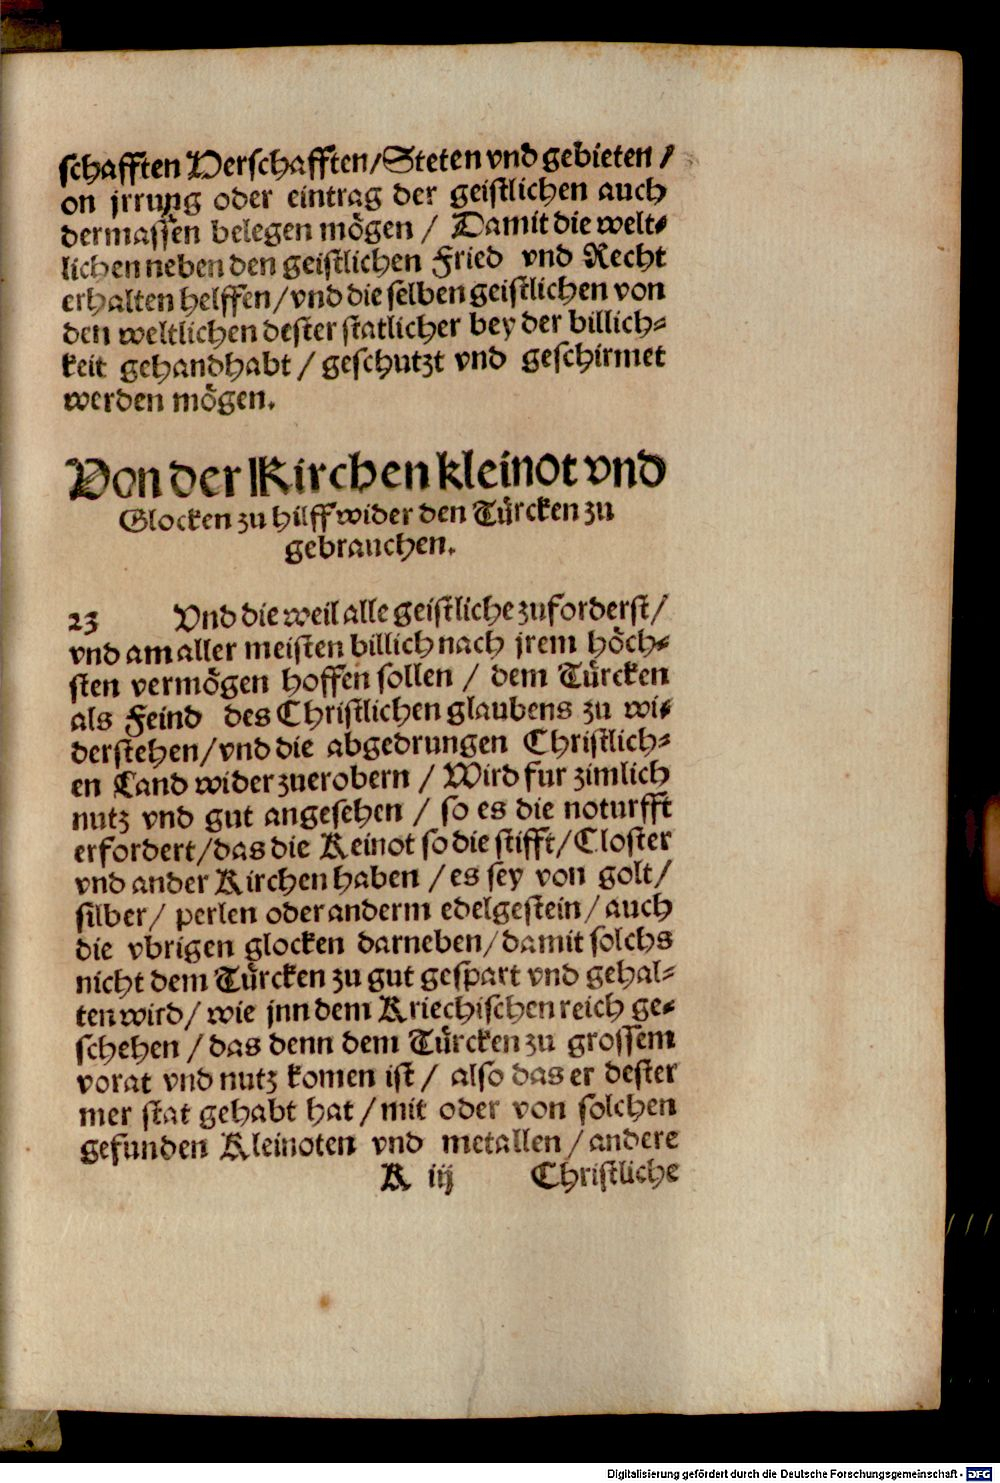 schafften Verschafften/Steten vnd gebieten /
on jrrung oder eintrag der geistlichen auch
dermassen belegen mögen / Damit die welt-
lichen neben den geistlichen Fried vnd Recht
erhalten helffen/vnd die selben geistlichen von
den weltlichen dester statlicher bey der billich-
keit gehandhabt / geschutzt vnd geschirmet
werden mögen.
Von der Kirchen kleinot vnd
Glocken zu hilff wider den Türcken zu
gebrauchen.
23 Vnd die weil alle geistliche zuforderst/
vnd am aller meisten billich nach jrem höch-
sten vermögen hoffen sollen / dem Türcken
als Feind des Christlichen glaubens zu wi-
derstehen/vnd die abgedrungen Christlich-
en Land wider zuerobern / Wird fur zimlich
nutz vnd gut angesehen / so es die noturfft
erfordert/das die Keinot so die stifft/Closter
vnd ander Kirchen haben /es sey von golt/
silber/ perlen oder anderm edelgestein/auch
die vbrigen glocken darneben/damit solchs
nicht dem Türcken zu gut gespart vnd gehal-
ten wird/ wie jnn dem Kriechischen reich ge-
schehen /das denn dem Türcken zu grossem
vorat vnd nutz komen ist / also das er dester
mer stat gehabt hat /mit oder von solchen
gefunden Kleinoten vnd metallen /andere
K iij Christliche
Digitalisierung gefördert durch die Deutsche Forschungsgemeinschaft - DFG